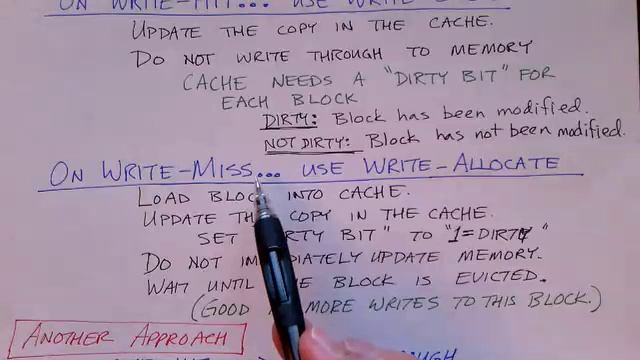 ON WRITE-HIT... USE WRITE
UPDATE THE COPY IN THE CACHE.
DO NOT WRITE THROUGH TO MEMORY
CACHE NEEDS A "DIRTY BIT" FOR
EACH BLOCK
DIRTY: Block has been modified.
NOT DIRTY: Block has not been modified.
ON WRITE-MISS... USE WRITE-ALLOCATE
LOAD BLOCK INTO CACHE.
UPDATE THE COPY IN THE CACHE.
SET "DIRTY BIT" TO "1=DIRTY"
DO NOT IMMEDIATELY UPDATE MEMORY.
WAIT UNTIL THE BLOCK IS EVICTED.
(GOOD MORE WRITES TO THIS BLOCK.)
ANOTHER APPROACH